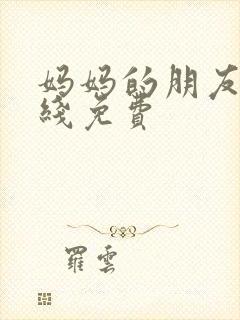 妈妈的朋友
线免费
羅雲